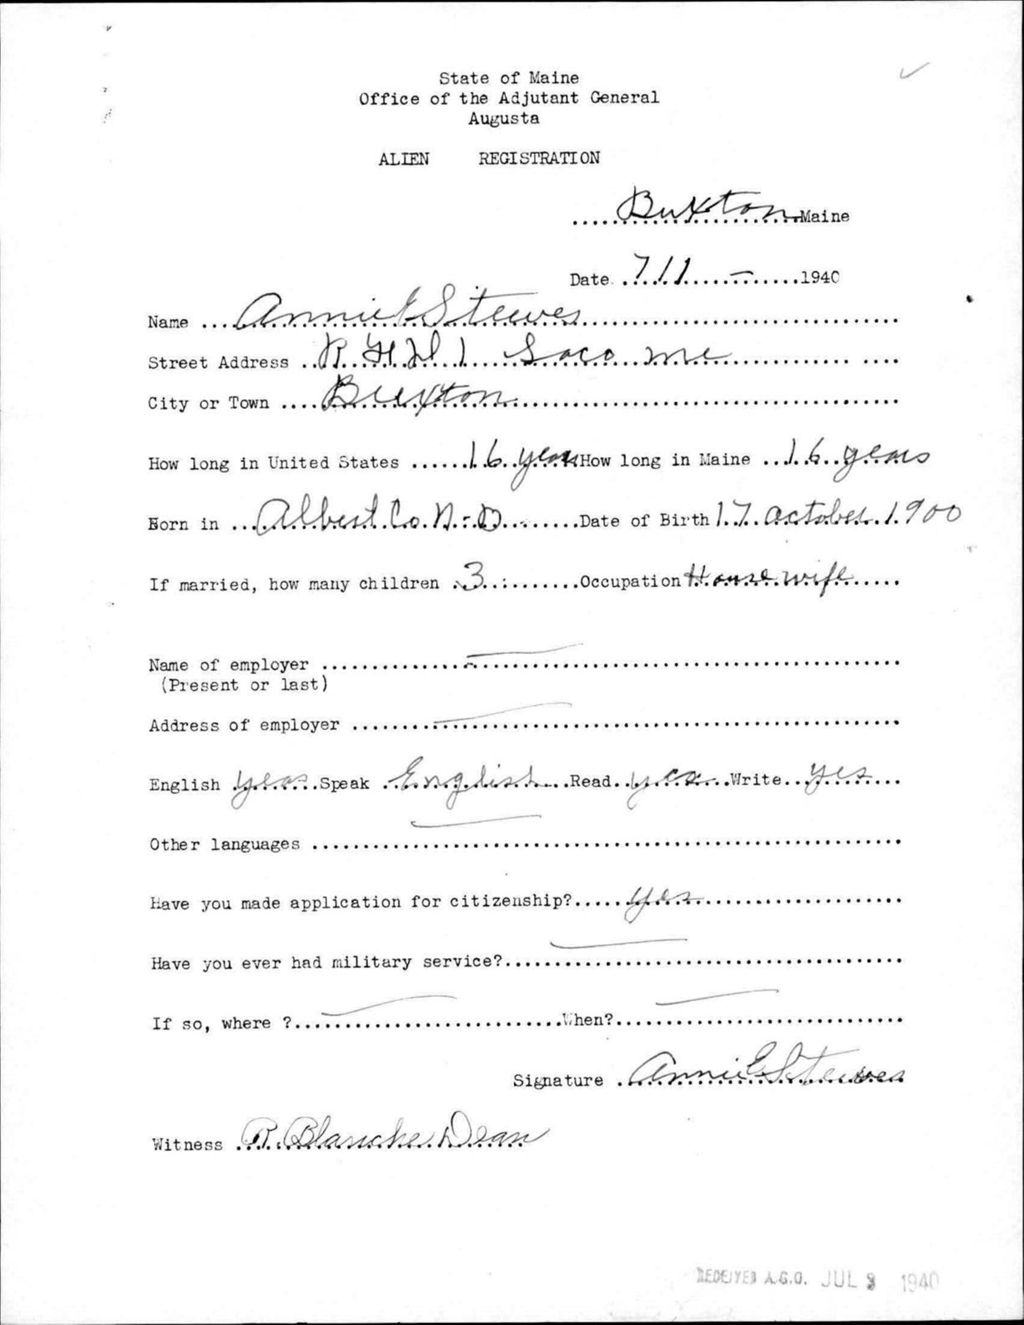 State of Maine
Office of the Adjutant General
Augusta
ALIEN REGISTRATION
Buxton Maine
Date 7/1/ — 1940
Name Annie E Steeves
Street Address R.F.D. 1 Saco me
City or Town Buxton
How long in United States 16 years How long in Maine 16 years
Born in Albert Co. N-B Date of Birth 17 October 1900
If married, how many children 3 Occupation Housewife
Name of employer —
(Present or last)
Address of employer —
English yes Speak English Read yes Write yes
Other languages —
Have you made application for citizenship? yes
Have you ever had military service? —
If so, where ? — When? —
Signature Annie E Steeves
Witness R. Blanche Dean
RECEIVED A.G.O. JUL 3 1940